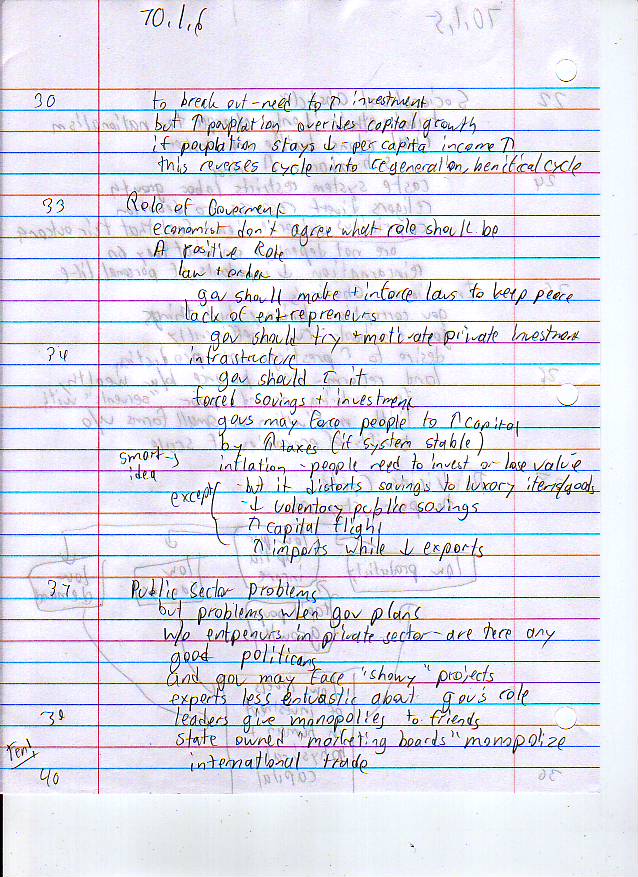 70.1.6
30 to break out-need to ↑ investment
but ↑ pouplation overides capital growth
if pouplation stays ↓ - per capita income ↑
this reverses cycle into regeneration, benitical cycle
33 Role of Goverment
economist don't agree what role should be
A Positive Role
law + order
gov should make + inforce laws to keep peace
lack of entrepreneurs
gov should try + motivate private Investment
34 infrastructure
gov should ↑ it
forced savings + investment
govs may force people to ↑ capital
by - ↑ taxes (if system stable)
smart idea → inflation - people need to invest or lose value
except - but it distorts savings to luxory items/goods
- ↓ volentory public savings
↑ capital flight
↑ imports while ↓ exports
37 Public Sector Problems
but problems when gov plans
w/o entpenurs in private sector - are there any
good politicans
and gov may face "showy" projects
experts less entuastic about gov's role
39 leaders give monopolies to friends
state owned "marketing boards" monopolize
40 international trade